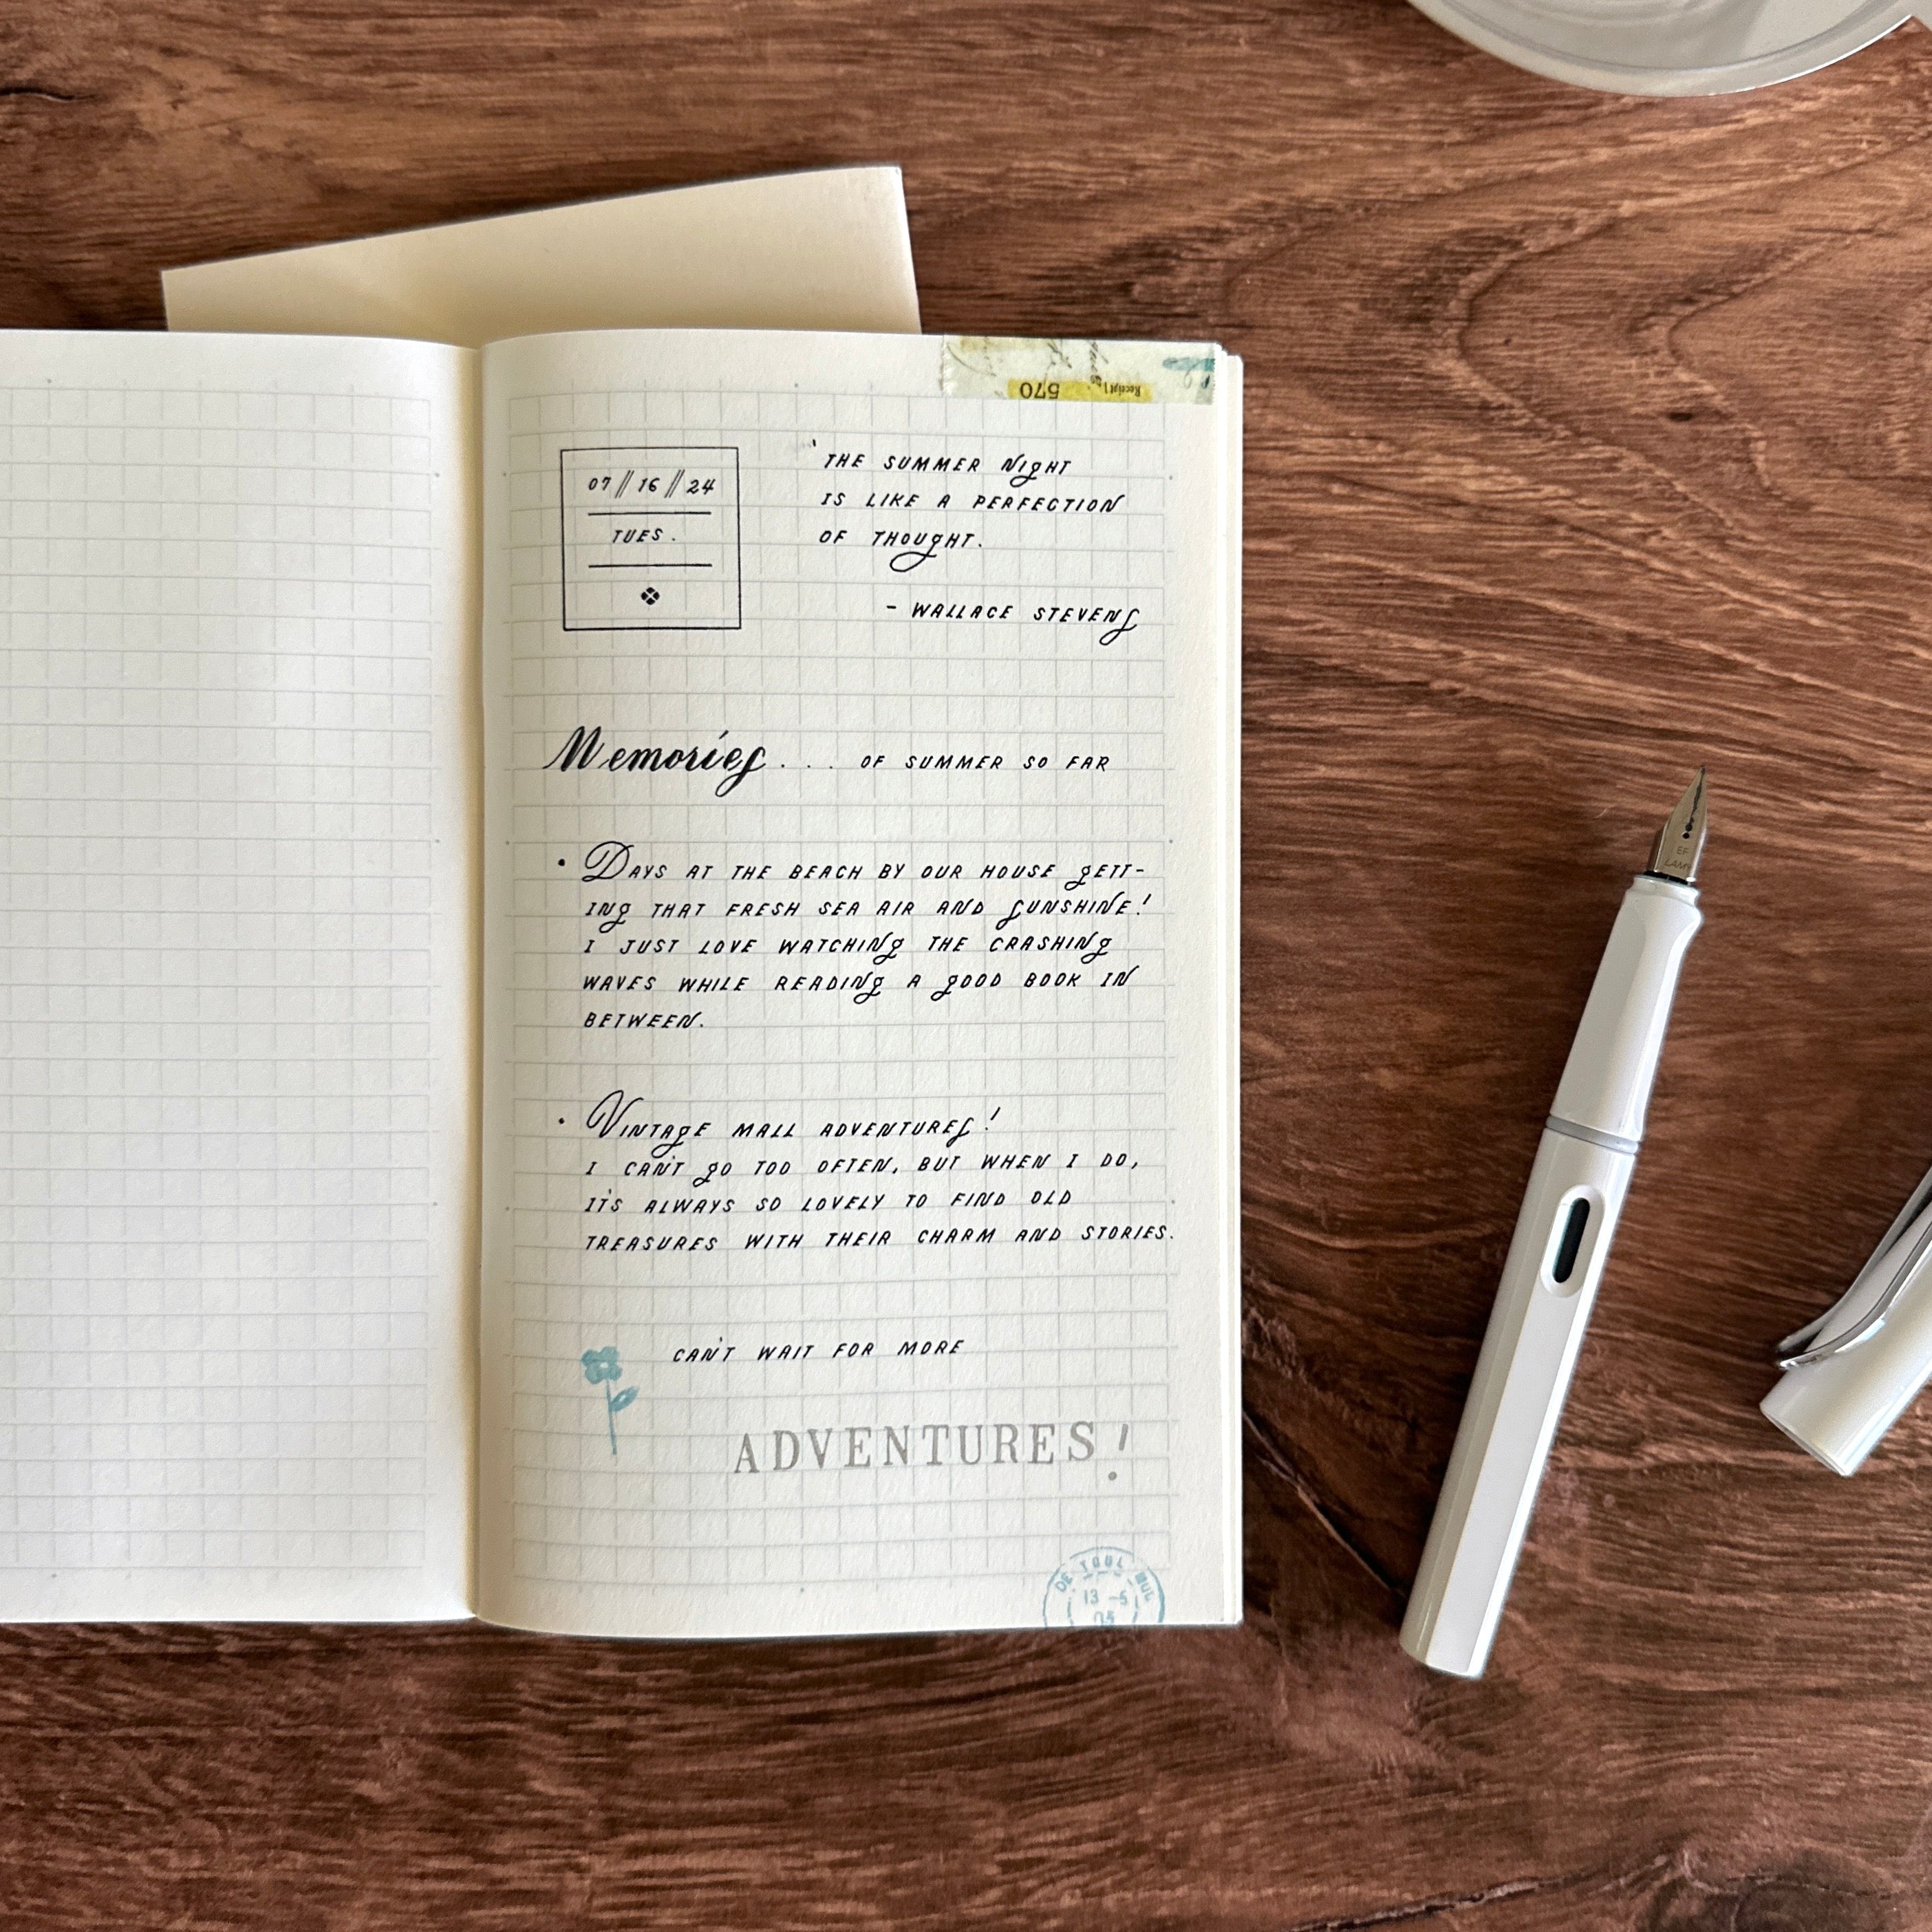 570
Receipt
07 // 16 // 24
TUES.
'THE SUMMER NIGHT
IS LIKE A PERFECTION
OF THOUGHT.
- WALLACE STEVENS
Memories... OF SUMMER SO FAR
• DAYS AT THE BEACH BY OUR HOUSE GETT-
ING THAT FRESH SEA AIR AND SUNSHINE!
I JUST LOVE WATCHING THE CRASHING
WAVES WHILE READING A GOOD BOOK IN
BETWEEN.
• VINTAGE MALL ADVENTURES!
I CAN'T GO TOO OFTEN, BUT WHEN I DO,
IT'S ALWAYS SO LOVELY TO FIND OLD
TREASURES WITH THEIR CHARM AND STORIES.
CAN'T WAIT FOR MORE
ADVENTURES!
DE TOUL
13 -5
EF
LAMY